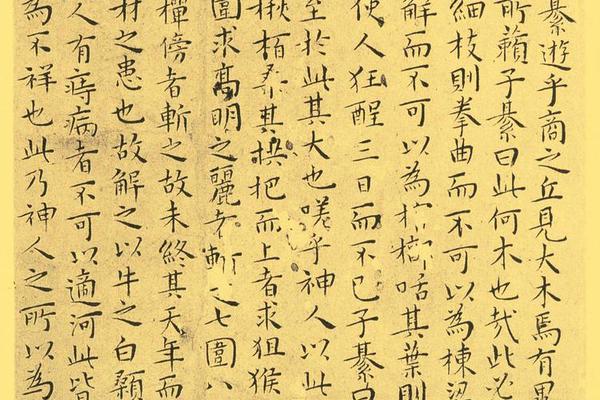 綦遊乎商之丘見大木焉有異
所籟子綦曰此何木也哉此必
細枝則拳曲而不可以為棟梁
解而不可以為棺槨咶其葉則
使人狂醒三日而不已子綦曰
至於此其大也嗟乎神人以此
楸栢桑其拱把而上者求狙猴
圍求高明之麗者斬之七圍八
樿傍者斬之故未終其天年而
材之患也故解之以牛之白顙
人有痔病者不可以適河此皆
為不祥也此乃神人之所以為